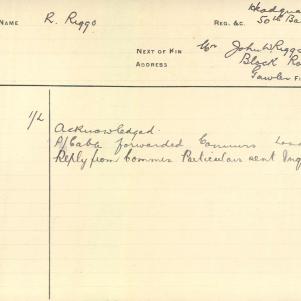 Headqua
NAME R. Riggs REG. &C. 50th Ba
NEXT OF KIN Mr John W. Riggs
ADDRESS Black Ro
Gawler
1/2 Acknowledged.
P/Cable forwarded Commrs Lond
Reply from Commrs Particulars sent Inq